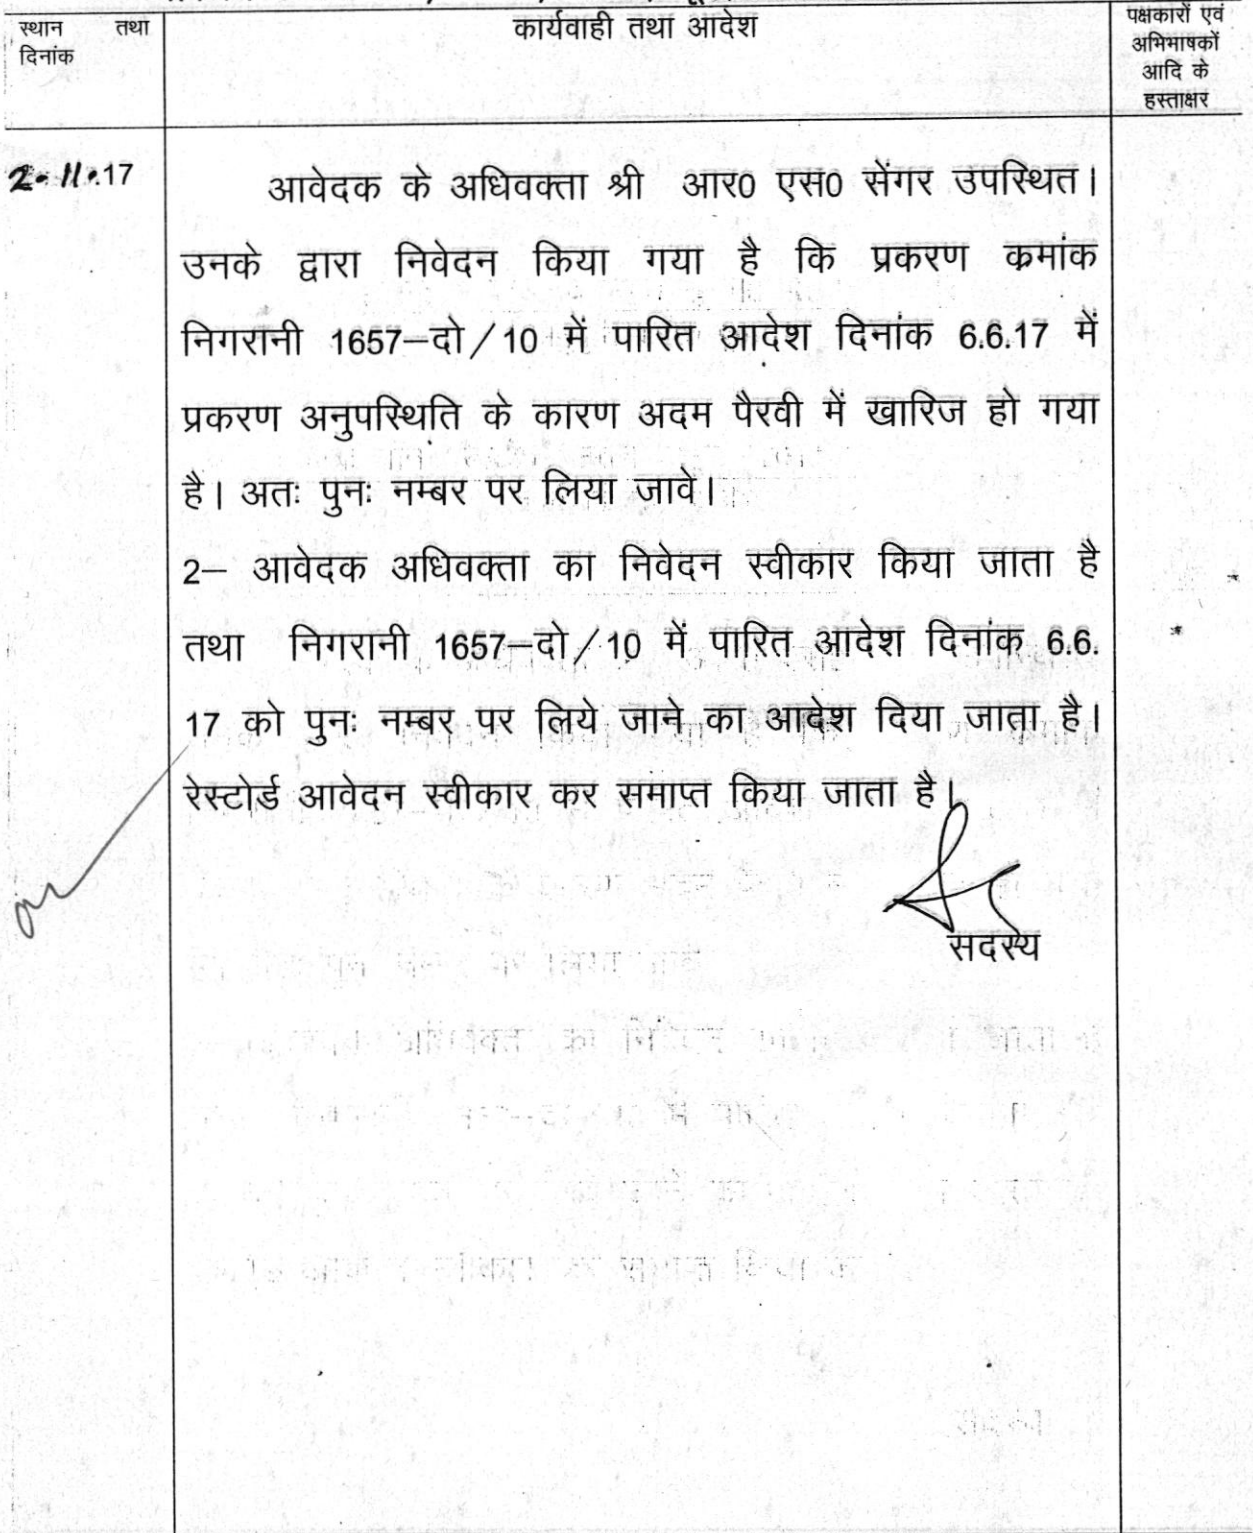 स्थान तथा
दिनांक
कार्यवाही तथा आदेश
पक्षकारों एवं
अभिभाषकों
आदि के
हस्ताक्षर
2.11.17
आवेदक के अधिवक्ता श्री आर0 एस0 सेंगर उपस्थित।
उनके द्वारा निवेदन किया गया है कि प्रकरण कमांक
निगरानी 1657–दो/10 में पारित आदेश दिनांक 6.6.17 में
प्रकरण अनुपस्थिति के कारण अदम पैरवी में खारिज हो गया
है। अतः पुनः नम्बर पर लिया जावे।
2– आवेदक अधिवक्ता का निवेदन स्वीकार किया जाता है
तथा निगरानी 1657–दो/10 में पारित आदेश दिनांक 6.6.
17 को पुनः नम्बर पर लिये जाने का आदेश दिया जाता है।
रेस्टोर्ड आवेदन स्वीकार कर समाप्त किया जाता है।
सदस्य